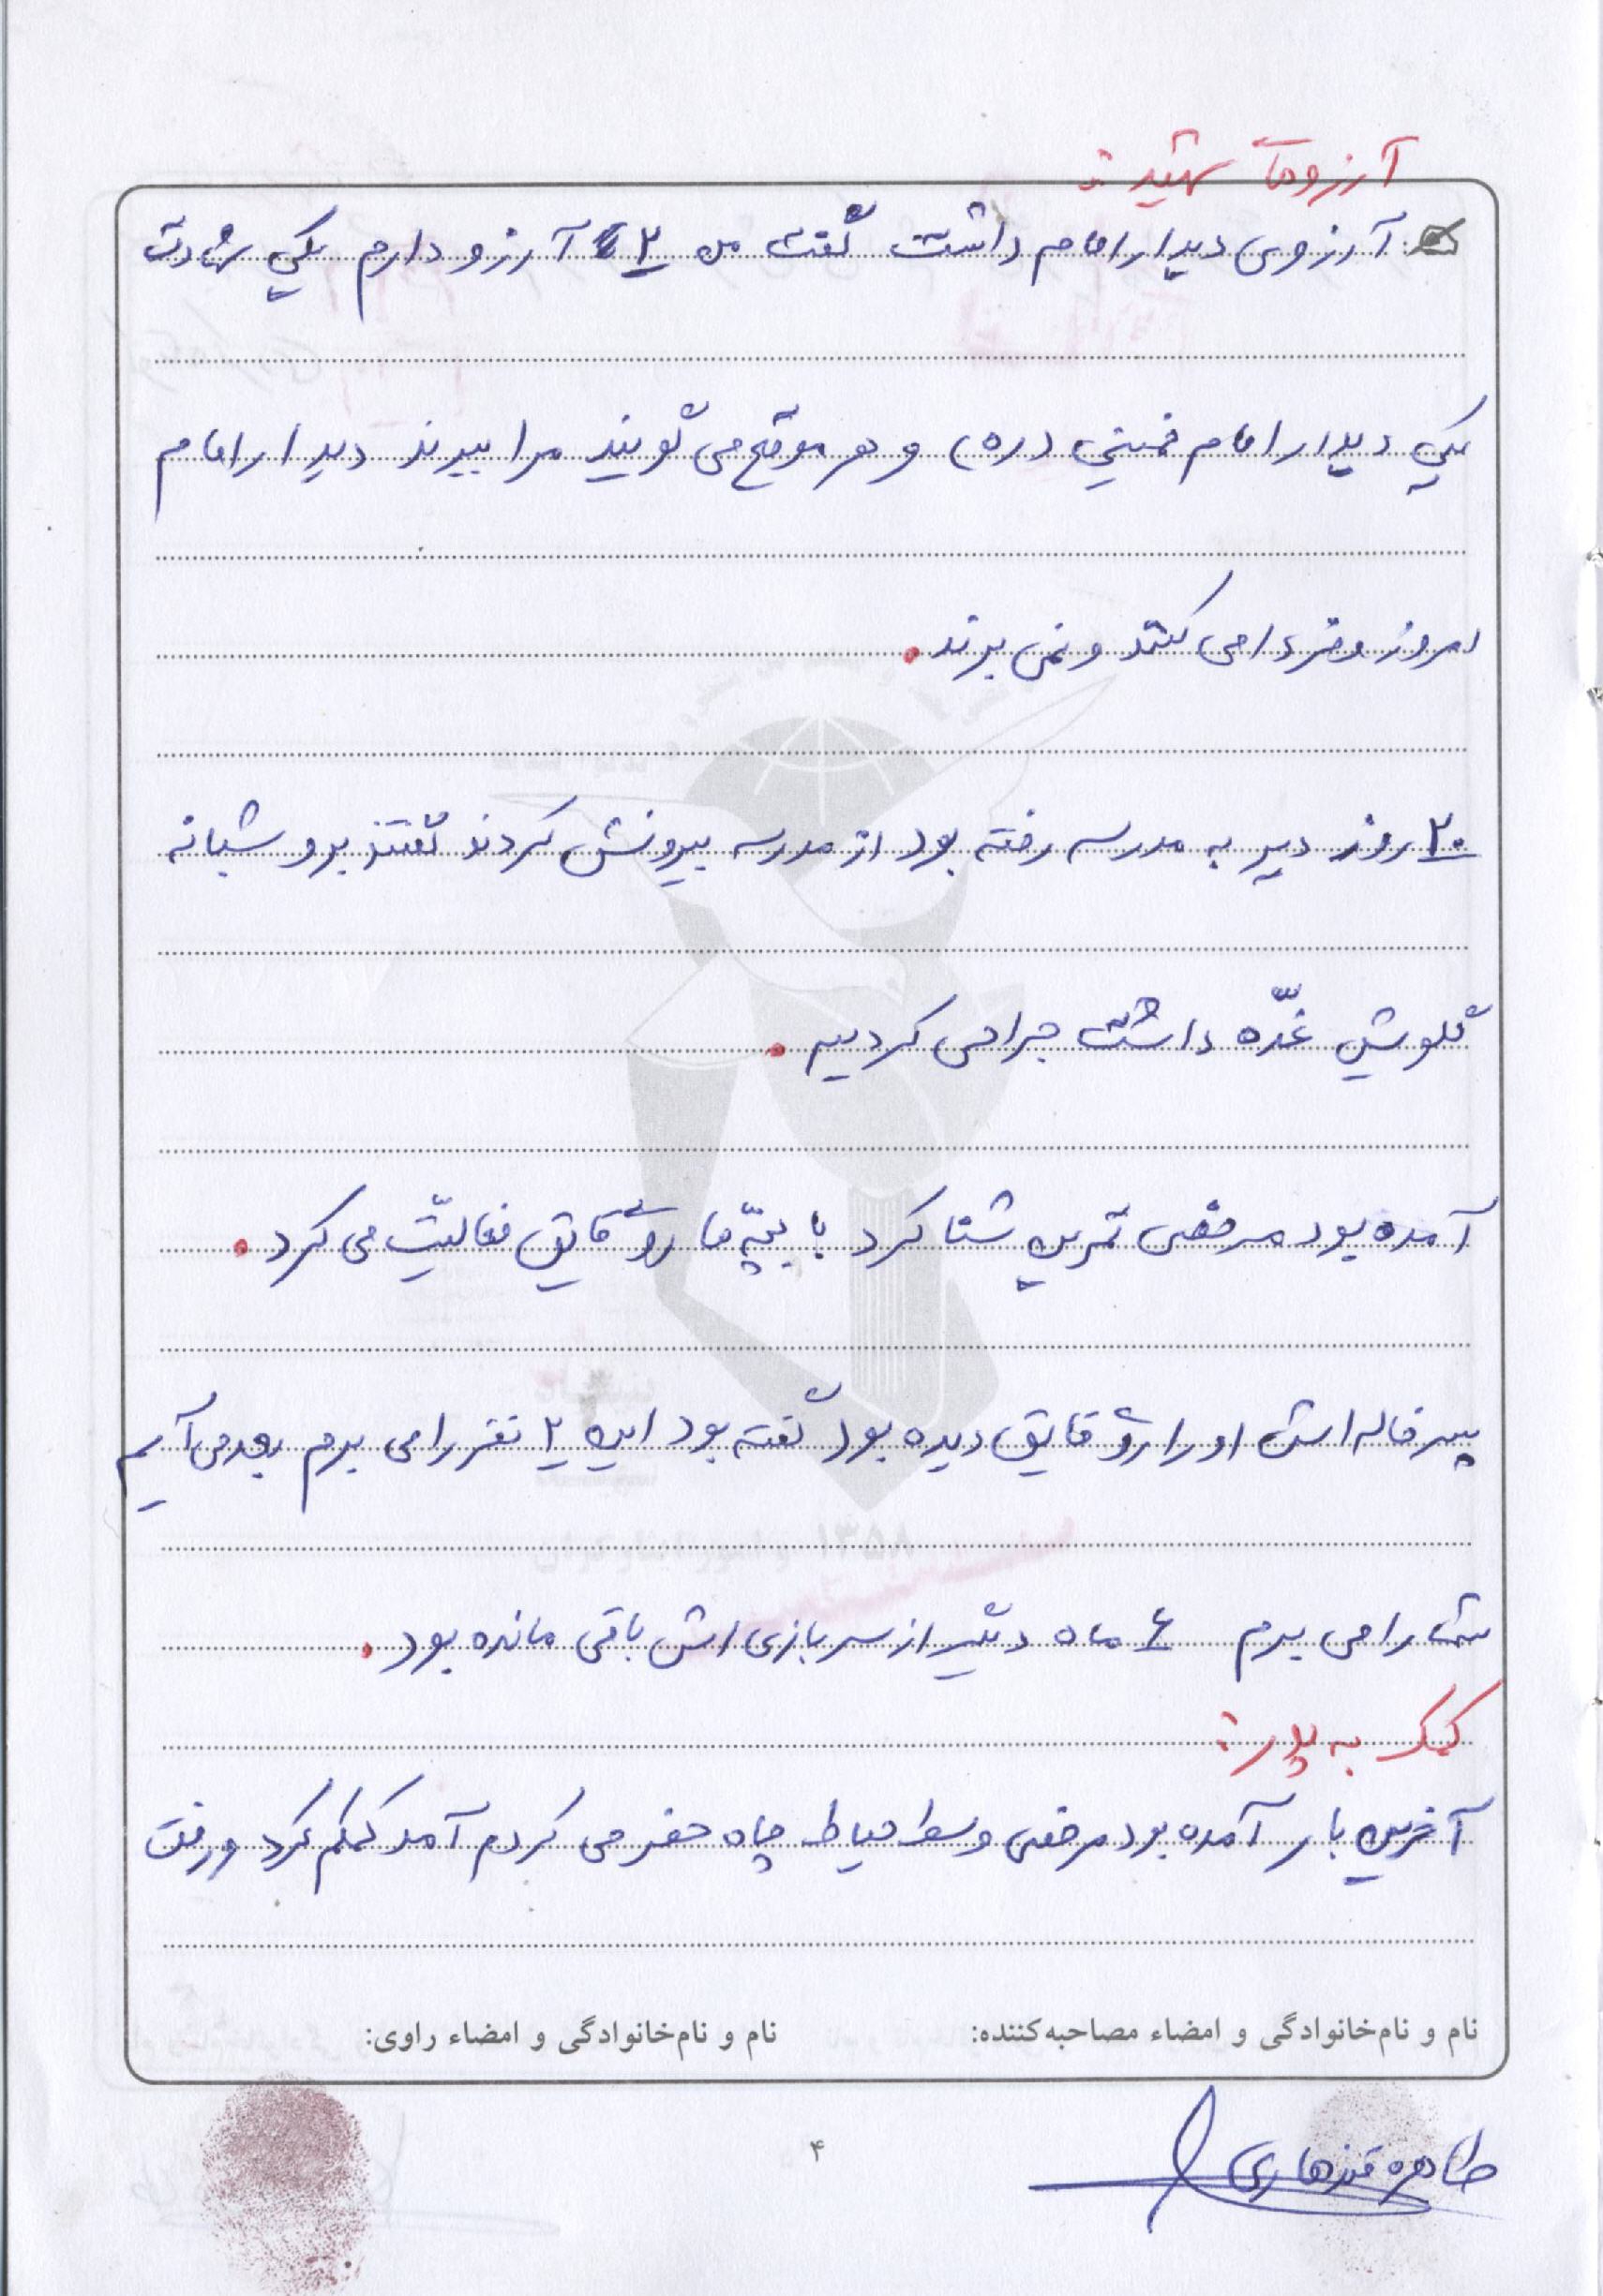 آرزوهای شهید:
آرزوی دیدار امام داشت گفت من ۲ آرزو دارم یکی شهادت
یکی دیدار امام خمینی (ره) و هر موقع می گویند مرا ببرند دیدار امام
امروز و فردا می کنند و نمی برند.
۲۰ روز دیر به مدرسه رفته بود از مدرسه بیرونش کردند گفتند برو شبانه
گلویش غدّه داشت جراحی کردیم.
آمده بود مرخصی تمرین شنا کرد با بچّه ها روی قایق فعالیّت می کرد.
پسر خاله اش او را رو قایق دیده بود گفته بود این ۲ نفر را می برم بعد می آیم
شما را می برم ۶ ماه دیگر از سربازی اش باقی مانده بود.
کمک به پدر:
آخرین بار آمده بود مرخصی وسط حیاط چاه حفر می کردم آمد کمکم کرد و رفت
نام و نام‌خانوادگی و امضاء مصاحبه‌کننده: نام و نام‌خانوادگی و امضاء راوی:
طاهره قندهاری
۴